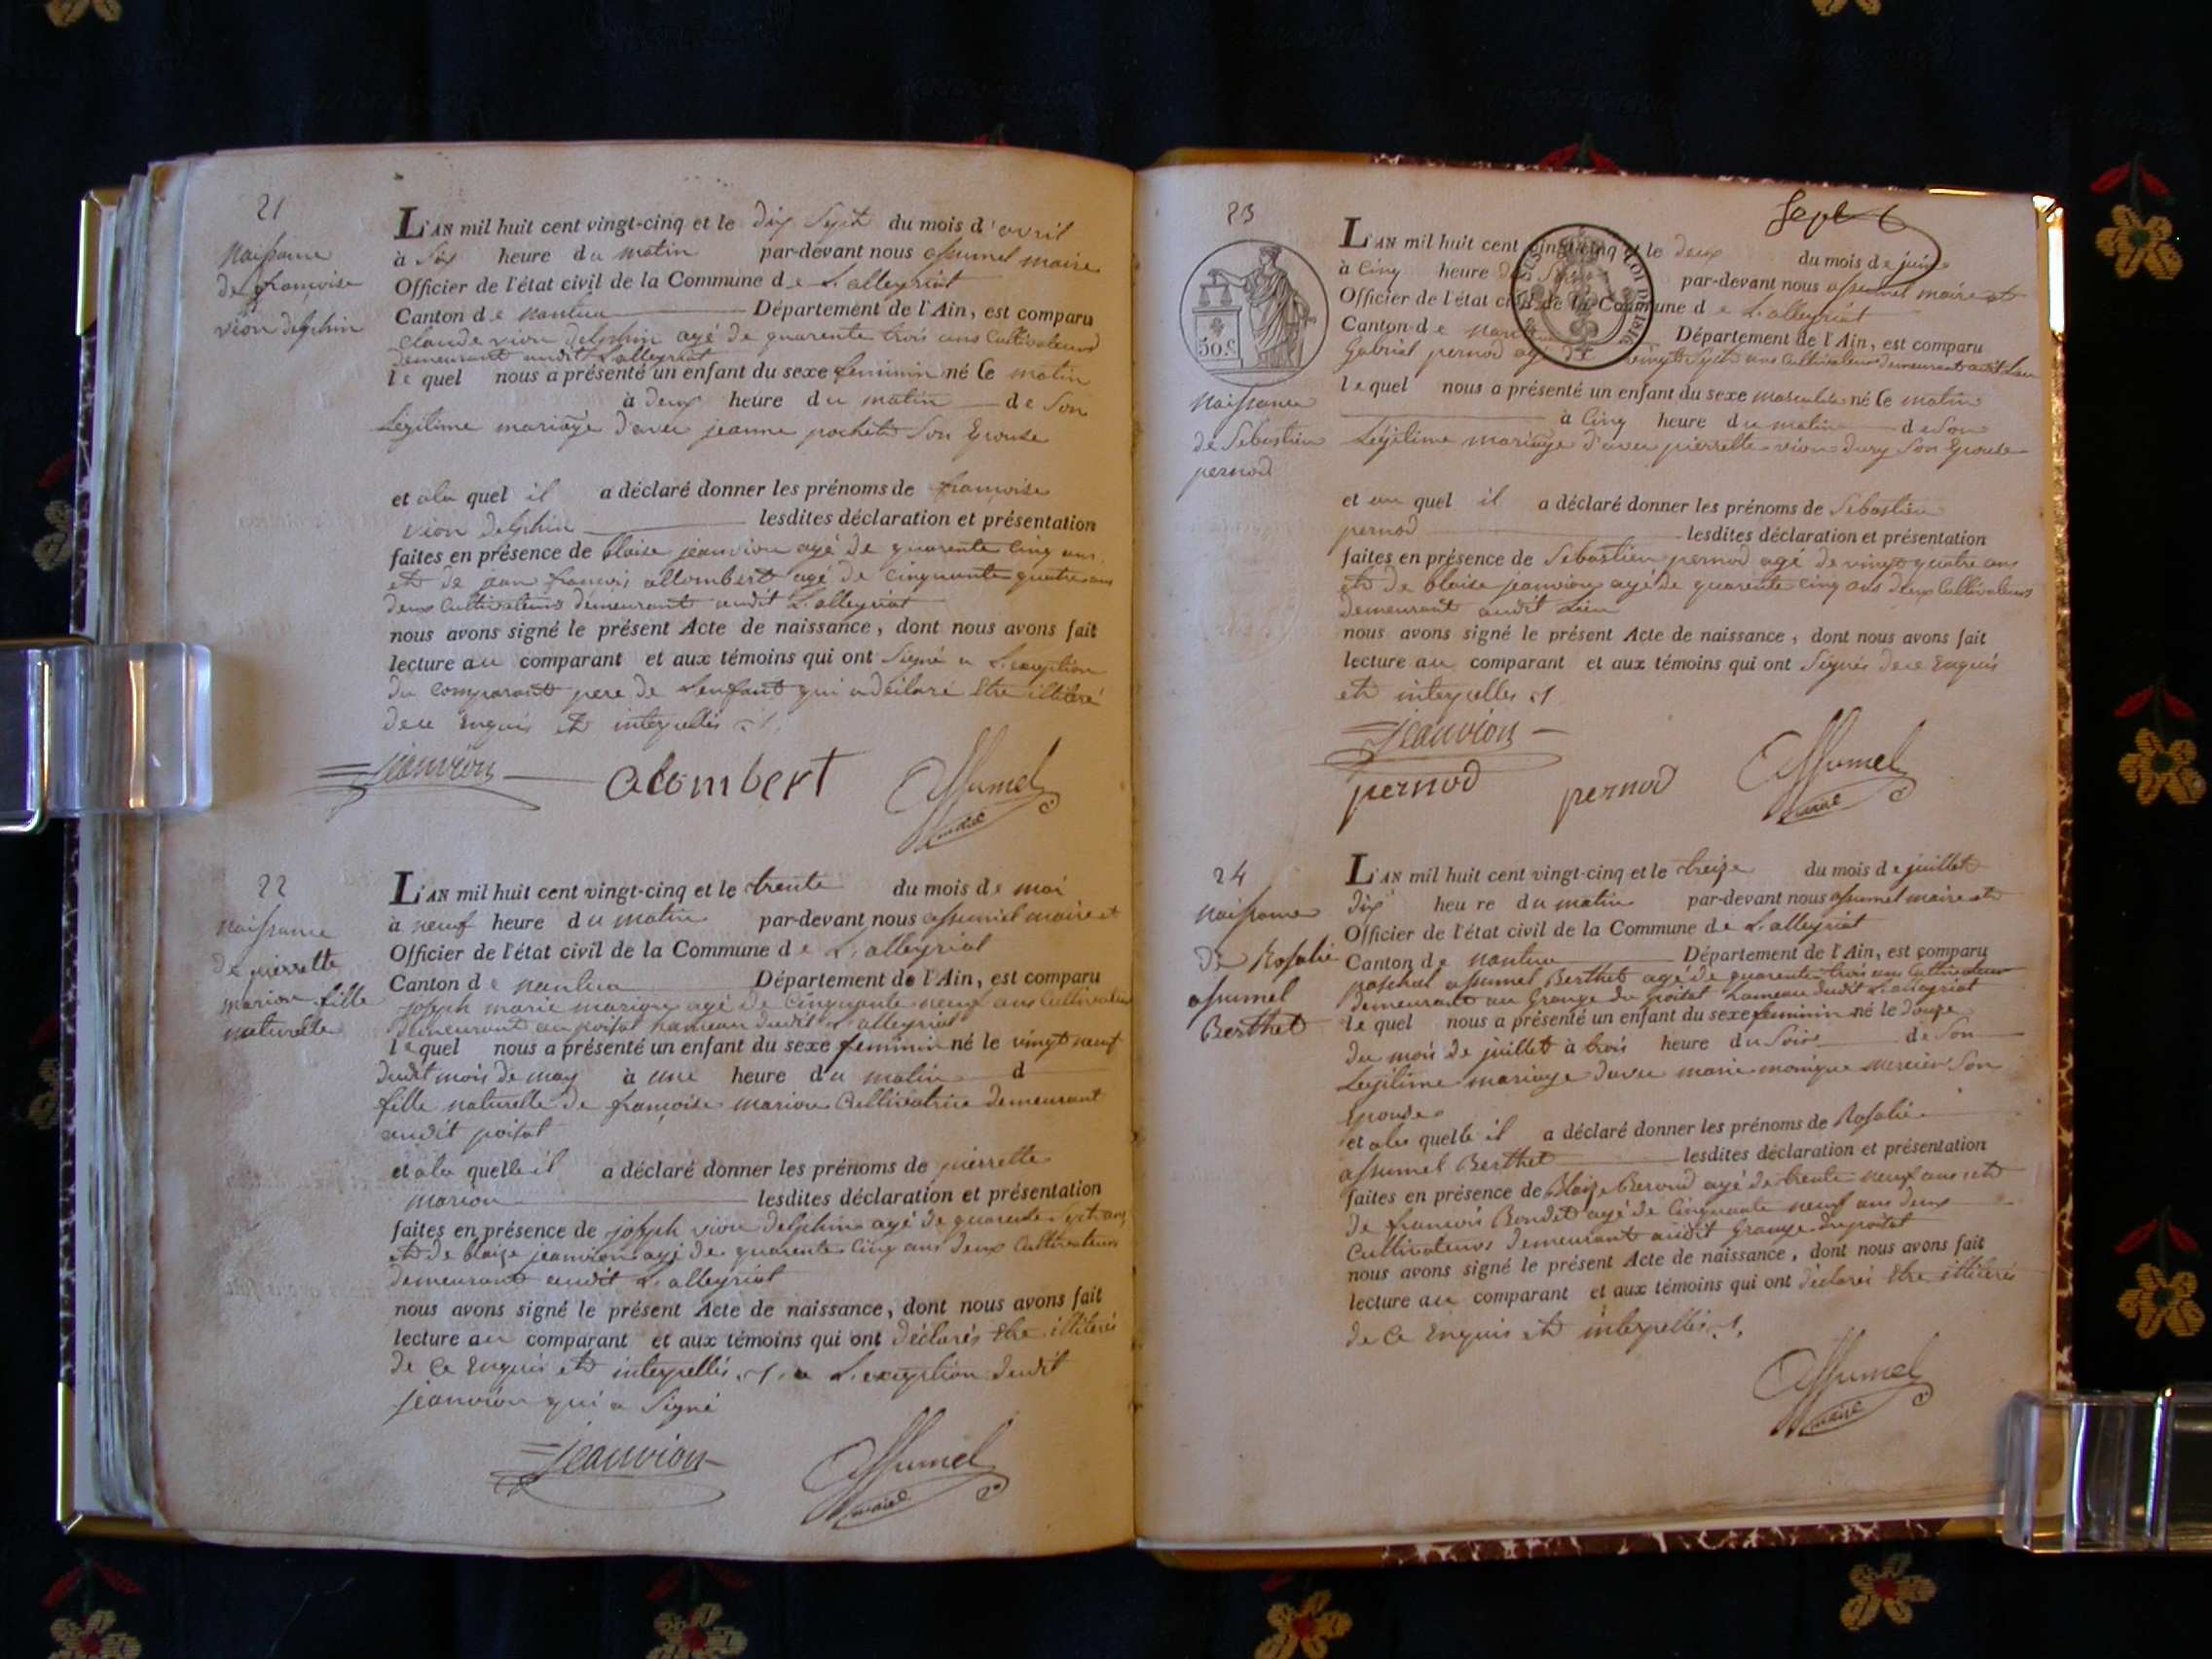 21
naissance
de françoise
vion delphin
L'AN mil huit cent vingt-cinq et le dix Sept du mois d'avril
à Six heure du matin par-devant nous assumel maire
Officier de l'état civil de la Commune de L'alleyriat
Canton de nantua Département de l'Ain, est comparu
claude vion delphin agé de quarente trois ans Cultivateur
demeurant audit L'alleyriat
lequel nous a présenté un enfant du sexe feminin né le matin
à deux heure du matin de Son
Légitime mariage d'avec jeanne pochet Son Epouse
et ala quel il a déclaré donner les prénoms de françoise
vion delphin lesdites déclaration et présentation
faites en présence de blaise jeanvion agé de quarente Cinq ans
et de jean françois allombert agé de cinquante quatre ans
deux Cultivateurs demeurant audit L'alleyriat
nous avons signé le présent Acte de naissance, dont nous avons fait
lecture au comparant et aux témoins qui ont Signé a L'exception
du Comparant pere de Lenfant qui a déclaré Etre illitéré
dece Enquis et interpellés
jeanvion
alombert
Assumel
maire
22
naissance
de pierrette
marion fille
naturelle
L'AN mil huit cent vingt-cinq et le trente du mois de mai
à neuf heure du matin par-devant nous assumel maire et
Officier de l'état civil de la Commune de L'alleyriat
Canton de nantua Département de l'Ain, est comparu
joseph marie marion agé de Cinquante neuf ans Cultivateur
demeurant au poisat hameau dudit L'alleyriat
lequel nous a présenté un enfant du sexe feminin né le vingt neuf
dudit mois de may à une heure du matin d
fille naturelle de françoise marion Cultivatrice demeurant
audit poisat
et ala quelle il a déclaré donner les prénoms de pierrette
marion lesdites déclaration et présentation
faites en présence de joseph vion delphin agé de quarente Sept ans
et de blaise jeanvion agé de quarente Cinq ans deux Cultivateurs
demeurant audit L'alleyriat
nous avons signé le présent Acte de naissance, dont nous avons fait
lecture au comparant et aux témoins qui ont déclarés Etre illiterés
de Ce Enquis et interpellés a L'exception dudit
jeanvion qui a Signé
jeanvion
Assumel
maire
Sept
23
50.C
naissance
de Sebastien
pernod
L'AN mil huit cent vingt-cinq et le deux du mois de juin
à Cinq heure du par-devant nous assumel maire et
Officier de l'état civil de la Commune de L'alleyriat
Canton de nantua Département de l'Ain, est comparu
Gabriel pernod agé de vingt Sept ans Cultivateur demeurant audit Lieu
lequel nous a présenté un enfant du sexe masculin né le matin
à Cinq heure du matin de Son
Légitime mariage d'avec pierrette vion dury Son Epouse
et au quel il a déclaré donner les prénoms de Sebastien
pernod lesdites déclaration et présentation
faites en présence de Sebastien pernod agé de vingt quatre ans
et de blaise jeanvion agé de quarente cinq ans deux Cultivateurs
demeurant audit Lieu
nous avons signé le présent Acte de naissance, dont nous avons fait
lecture au comparant et aux témoins qui ont Signés dece Enquis
et interpellés
jeanvion
pernod pernod
Assumel
maire
24
naissance
de Rosalie
assumel
Berthet
L'AN mil huit cent vingt-cinq et le treize du mois de juillet
dix heure du matin par-devant nous assumel maire et
Officier de l'état civil de la Commune de L'alleyriat
Canton de nantua Département de l'Ain, est comparu
paschal assumel Berthet agé de quarente trois ans Cultivateur
demeurant au Grange du poisat hameau dudit L'alleyriat
lequel nous a présenté un enfant du sexe feminin né le douze
du mois de juillet à trois heure du Soir de Son
Legitime mariage davec marie monique mercier Son
Epouse
et ala quelle il a déclaré donner les prénoms de Rosalie
assumel Berthet lesdites déclaration et présentation
faites en présence de Blaize agé de trente neuf ans et
de francois Bondet agé de Cinquante neuf ans deux
Cultivateurs demeurant audit Grange du poisat
nous avons signé le présent Acte de naissance, dont nous avons fait
lecture au comparant et aux témoins qui ont déclarés Etre illiterés
de Ce Enquis et interpellés
Assumel
maire